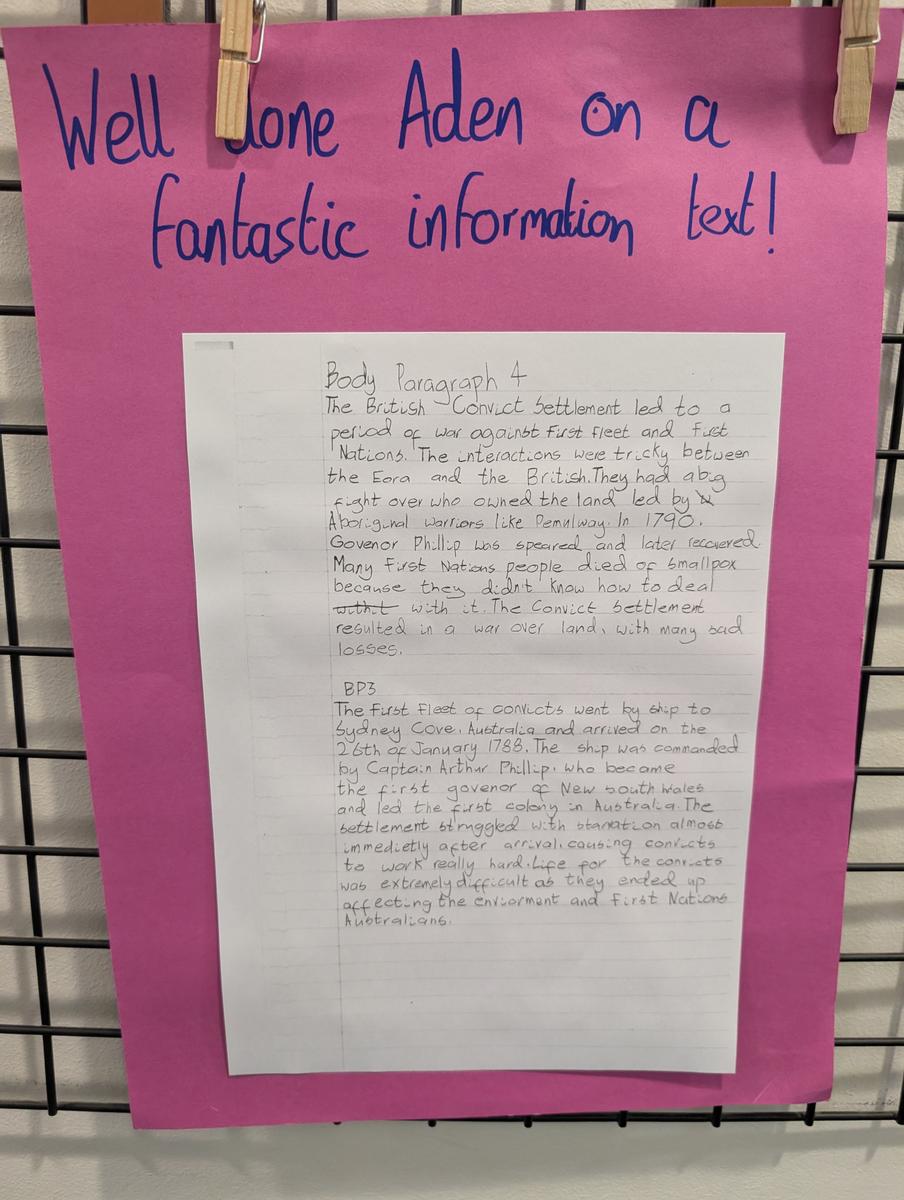 Well done Aden on a
fantastic information text!
Body Paragraph 4
The British Convict Settlement led to a
period of war against First Fleet and First
Nations. The interactions were tricky between
the Eora and the British. They had a big
fight over who owned the land led by
Aboriginal warriors like Pemulway. In 1790,
Govenor Phillip was speared and later recovered.
Many First Nations people died of Smallpox
because they didn't know how to deal
withit with it. The Convict Settlement
resulted in a war over land, with many sad
losses.
BP3
The First Fleet of convicts went by ship to
Sydney Cove, Australia and arrived on the
26th of January 1788. The ship was commanded
by Captain Arthur Phillip, who became
the first govenor of New South Wales
and led the first colony in Australia. The
settlement struggled with starvation almost
immedietly after arrival, causing convicts
to work really hard. Life for the convicts
was extremely difficult as they ended up
affecting the enviorment and First Nations
Australians.